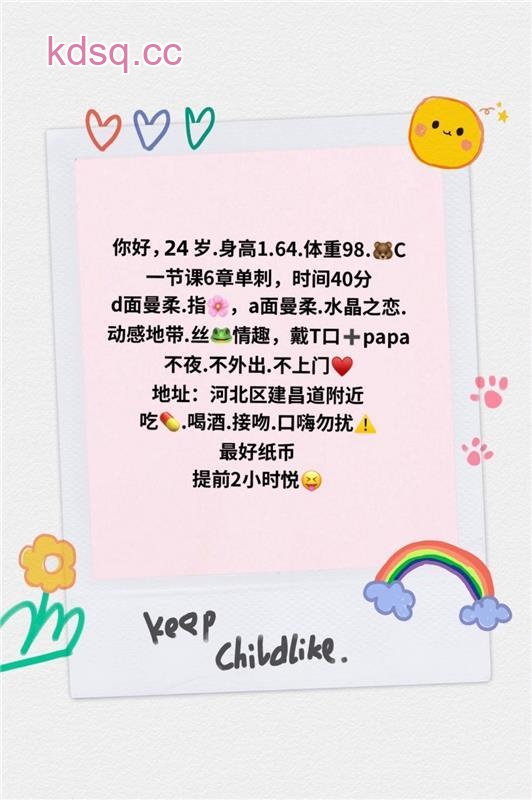 kdsq.cc
你好，24 岁.身高1.64.体重98.🐻C
一节课6章单刺，时间40分
d面曼柔.指🌸，a面曼柔.水晶之恋.
动感地带.丝🐸情趣，戴T口➕papa
不夜.不外出.不上门♥️
地址：河北区建昌道附近
吃💊.喝酒.接吻.口嗨勿扰⚠️
最好纸币
提前2小时悦😝
keep
childlike.